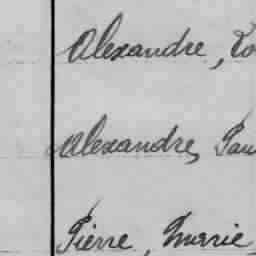 Alexandre,
Alexandre,
Pierre, Marie